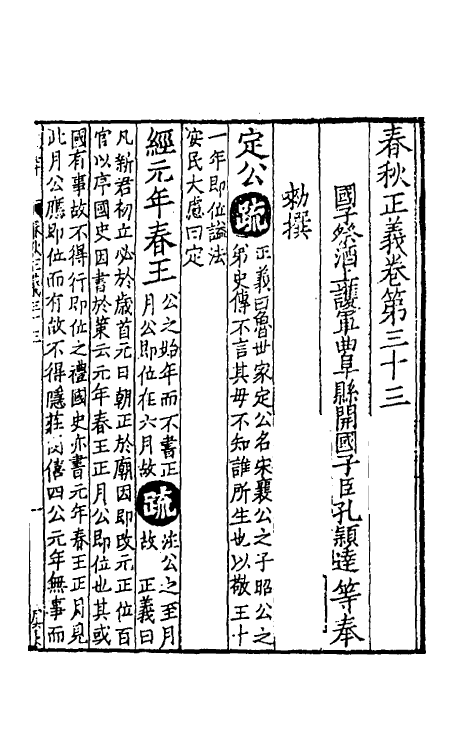 春秋正義卷第三十三
國子祭酒上護軍曲阜縣開國子臣孔穎達等奉
勑撰
定公疏正義曰魯世家定公名宋襄公之子昭公之
弟史傳不言其母不知誰所生也以敬王十
一年即位謚法
安民大慮曰定
經元年春王公之始年而不書正
月公即位在六月故疏注公之至月
故 正義曰
凡新君初立必於歲首元日朝正於廟因即改元正位百
官以序國史因書於策云元年春王正月公即位也其或
國有事故不得行即位之禮國史亦書元年春王正月見
此月公應即位而有故不得隱莊閔僖四公元年無事而